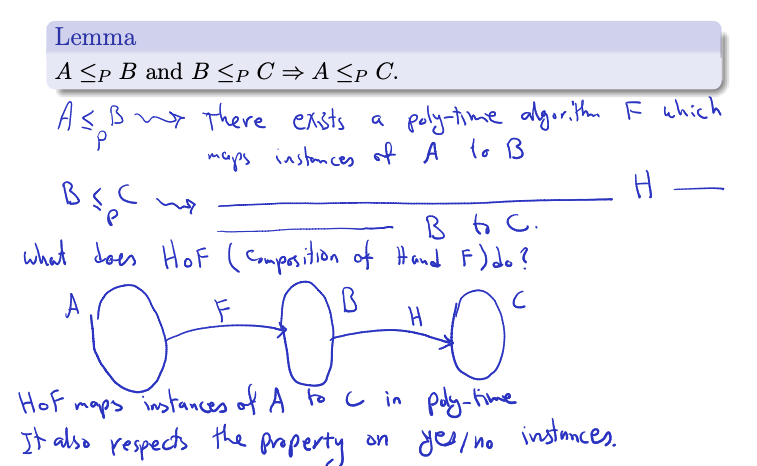 Lemma
A ≤P B and B ≤P C ⇒ A ≤P C.
A ≤p B ⇝ There exists a poly-time algorithm F which
maps instances of A to B
B ≤p C ⇝ ________ H __
________ B to C.
what does HoF (Composition of H and F) do?
A F B H C
HoF maps instances of A to C in poly-time
It also respects the property on yes/no instances.